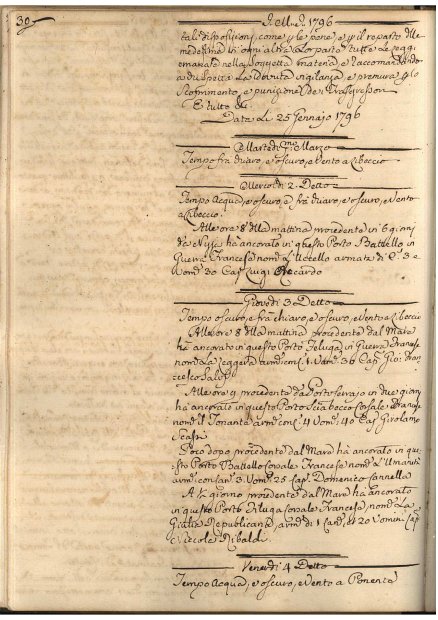 30
1796
tali disposizioni, come p le pene, e p il reparto delle
medesime in ogni altra Loro parte tutte le Leggi
emanate nella Soggetta materia, e raccomandando
a chi Spetta La dovuta vigilanza, e premura p lo
Scoprimento, e punizione de Trasgressori
E tutto &c
Data Li 25 Gennajo 1796
Martedi p.mo Marzo
Tempo fra chiaro, e oscuro, e Vento a Libeccio
Mercordi 2 Detto
Tempo Acqua, e oscuro, e fra chiaro, e oscuro, e Vento
a Libeccio
Alle ore 8 della mattina procedente in 6 giorni
da Nizza ha ancorato in questo Porto Battello in
Guerra Francese nom.o armato di C. 3 e
Uom. 30 Cap. Luigi Ricardo
Giovedi 3 Detto
Tempo oscuro, e fra chiaro, e oscuro, e Vento a Libeccio
Alle ore 8 della mattina procedente dal Mare
ha ancorato in questo Porto Feluga in Guerra Francese
nom.a La Leggera arm. con C. 1 Uom. 36 Cap. Gio: Fran:
cesco Salvi
Alle ore 9 procedente da Portoferrajo in due giorni
ha ancorato in questo Porto Sciabecco Corsale Francese
nom. il Tonante arm. con C. 4 Uom. 40 Cap. Girolamo
Poco dopo procedente dal Mare ha ancorato in que:
sto Porto Battello Corsale Francese nom.o L'Umanità
arm. con Can. 3 Uom. 25 Cap. Domenico Cannella
A ½ giorno procedente dal Mare ha ancorato
in questo Porto Filuga Corsale Francese, nom. La
Republicana arm. di 1 Can. e 20 Uomini Cap.
Niccole Ribaldi
Venerdi 4 Detto
Tempo Acqua, e oscuro, e Vento a Ponente